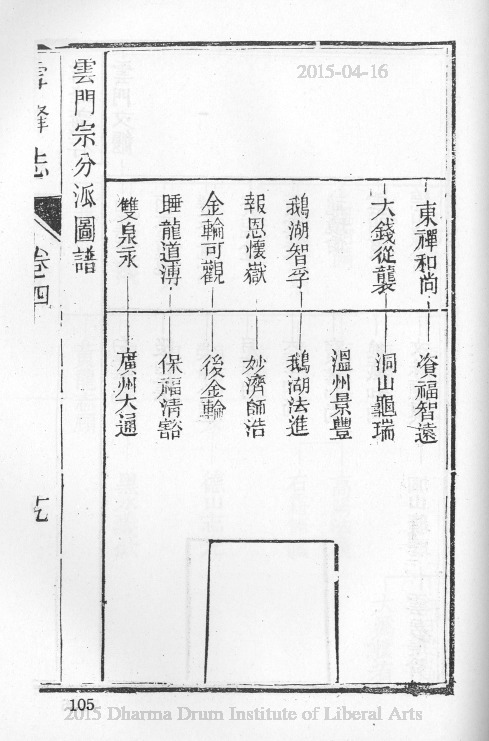 2015-04-16
東禪和尚
資福智遠
大錢從襲
洞山龜瑞
溫州景豐
鵝湖智孚
鵝湖法進
報恩懷嶽
妙濟師浩
金輪可觀
後金輪
睡龍道溥
保福清豁
雙泉永
廣州大通
雲門宗分派圖譜
雪峰志
卷四
105
2015 Dharma Drum Institute of Liberal Arts